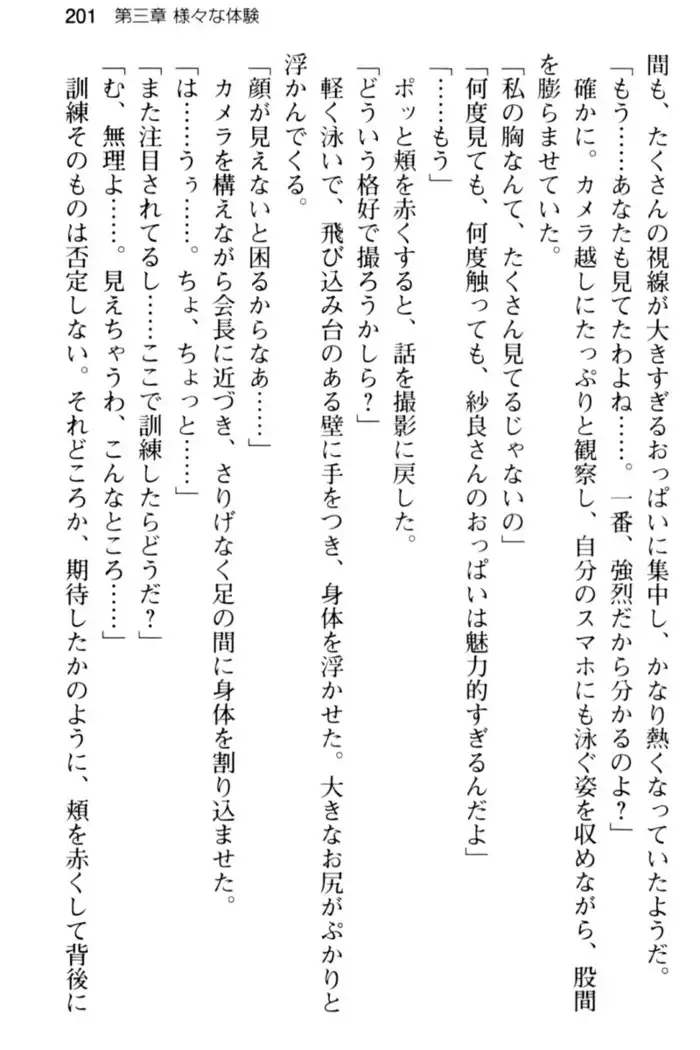 201 第三章 様々な体験
間も、たくさんの視線が大きすぎるおっぱいに集中し、かなり熱くなっていたようだ。
「もう……あなたも見てたわよね……。一番、強烈だから分かるのよ?」
確かに。カメラ越しにたっぷりと観察し、自分のスマホにも泳ぐ姿を収めながら、股間
を膨らませていた。
「私の胸なんて、たくさん見てるじゃないの」
「何度見ても、何度触っても、紗良さんのおっぱいは魅力的すぎるんだよ」
「……もう」
ポッと頬を赤くすると、話を撮影に戻した。
「どういう格好で撮ろうかしら?」
軽く泳いで、飛び込み台のある壁に手をつき、身体を浮かせた。大きなお尻がぷかりと
浮かんでくる。
「顔が見えないと困るからなあ……」
カメラを構えながら会長に近づき、さりげなく足の間に身体を割り込ませた。
「は……うぅ……。ちょ、ちょっと……」
「また注目されてるし……ここで訓練したらどうだ?」
「む、無理よ……。見えちゃうわ、こんなところ……」
訓練そのものは否定しない。それどころか、期待したかのように、頬を赤くして背後に